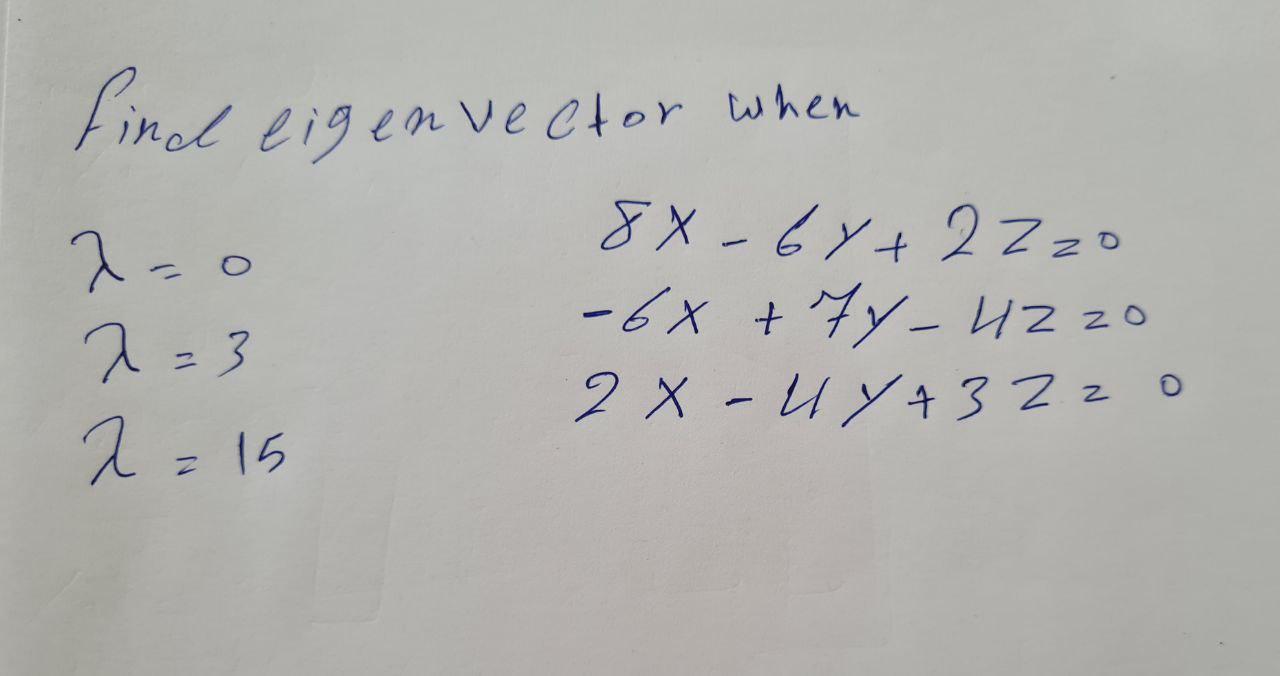 find eigenvector when
λ = 0
8x - 6y + 2z = 0
λ = 3
-6x + 7y - 4z = 0
λ = 15
2x - 4y + 3z = 0